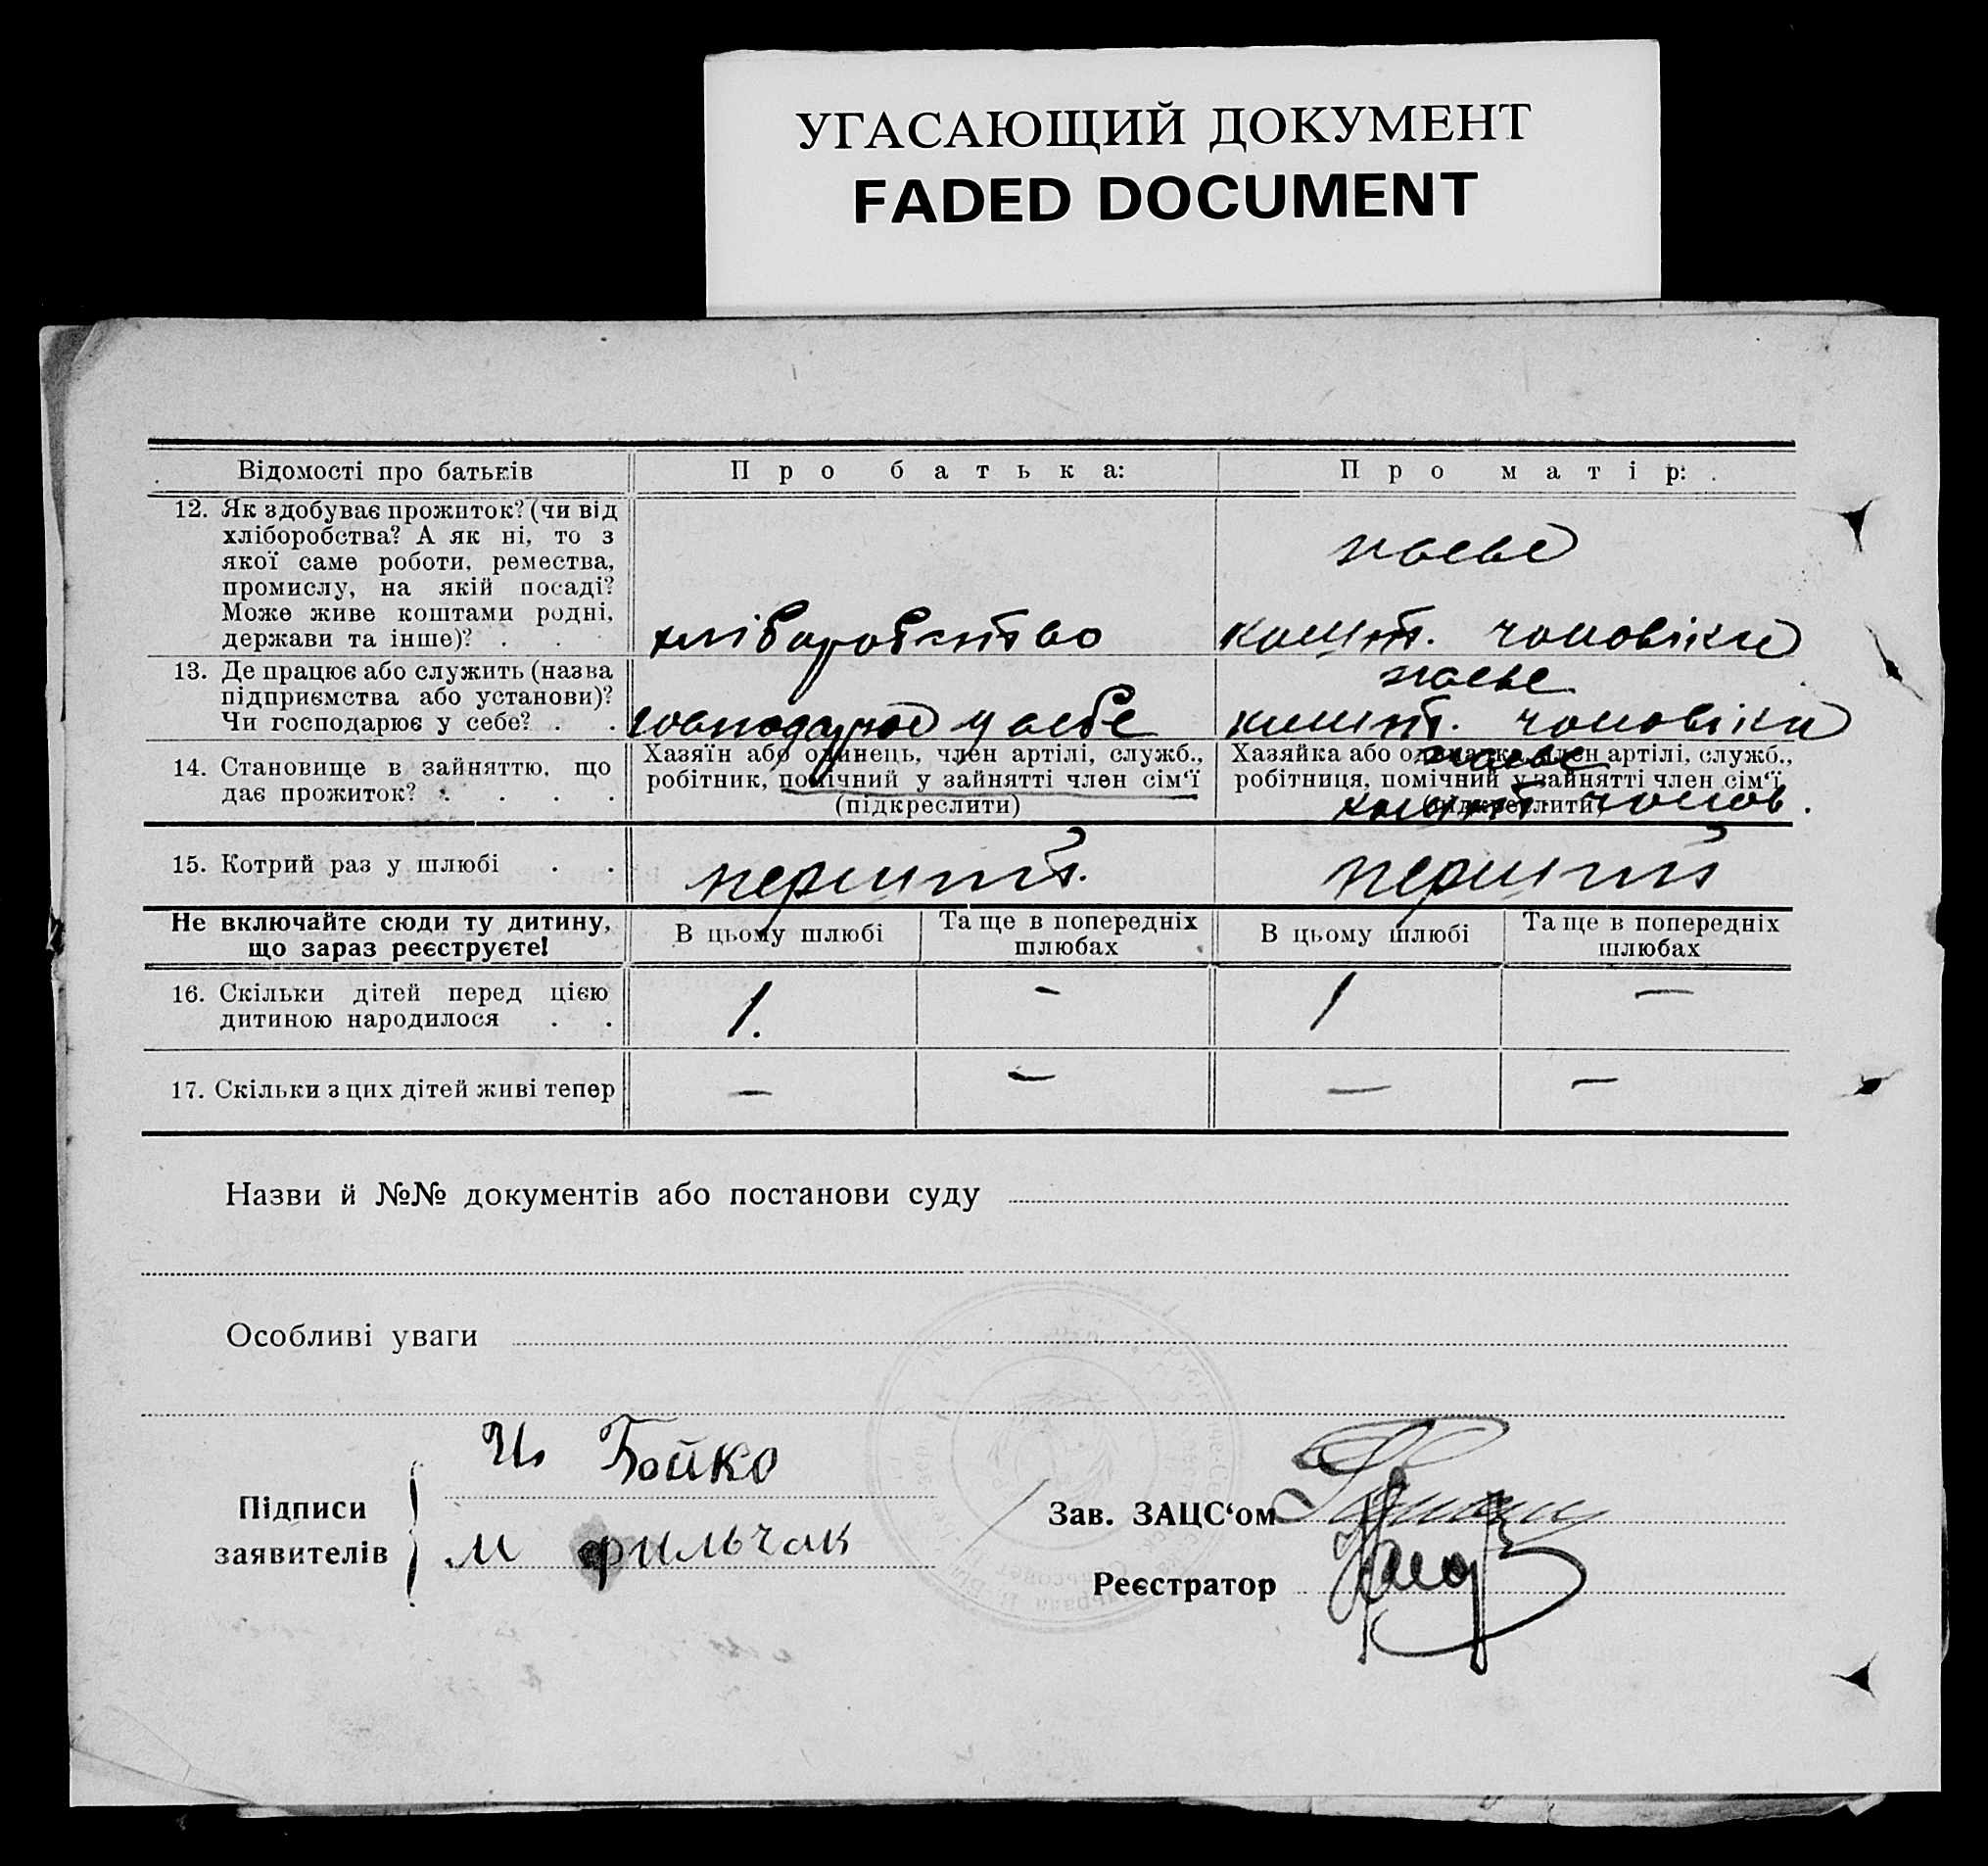 УГАСАЮЩИЙ ДОКУМЕНТ
FADED DOCUMENT
Відомості про батьків
Про батька:
Про матір:
12. Як здобуває прожиток? (чи від
хліборобства? А як ні, то з
якої саме роботи, ремества,
промислу, на якій посаді?
Може живе коштами родні,
держави та інше)? . .
хліборобство
живе
кошт. чоловіка
13. Де працює або служить (назва
підприємства або установи)?
Чи господарює у себе? . .
господарює у себе
живе
кошт. чоловіка
14. Становище в зайняттю, що
дає прожиток? . . . .
Хазяїн або одинець, член артілі, служб.,
робітник, помічний у зайнятті член сім‘ї
(підкреслити)
Хазяйка або одиначка, член артілі, служб.,
робітниця, помічний у зайнятті член сім‘ї
(підкреслити)
живе
кошт. чолов.
15. Котрий раз у шлюбі . .
перший.
перший
Не включайте сюди ту дитину,
що зараз реєструєте!
В цьому шлюбі
Та ще в попередніх
шлюбах
В цьому шлюбі
Та ще в попередніх
шлюбах
16. Скільки дітей перед цією
дитиною народилося . .
1.
-
1
—
17. Скільки з цих дітей живі тепер
—
—
—
—
Назви й №№ документів або постанови суду
Особливі уваги
Підписи
заявителів
Бойко
М Фильчак
Зав. ЗАЦС‘ом
Реєстратор